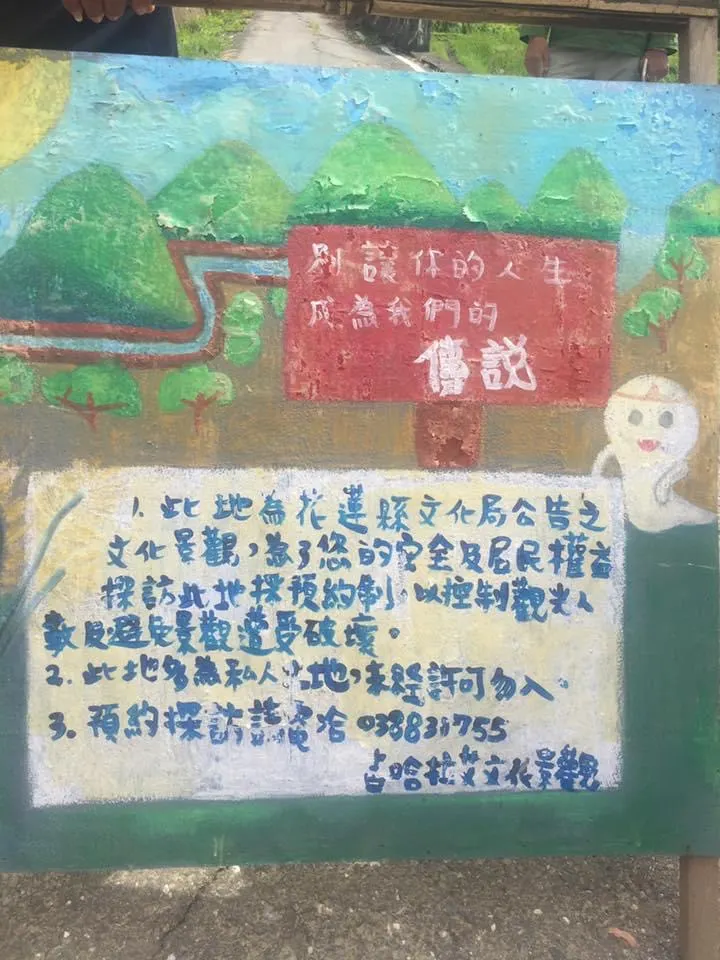 別讓你的人生
成為我們的
傳說
1. 此地為花蓮縣文化局公告之
文化景觀,為了您的安全及居民權益
探訪此地採預約制,以控制觀光人
數及避免景觀遭受破壞。
2. 此地多為私人土地,未經許可勿入。
3. 預約探訪請電洽
吉哈拉艾文化景觀